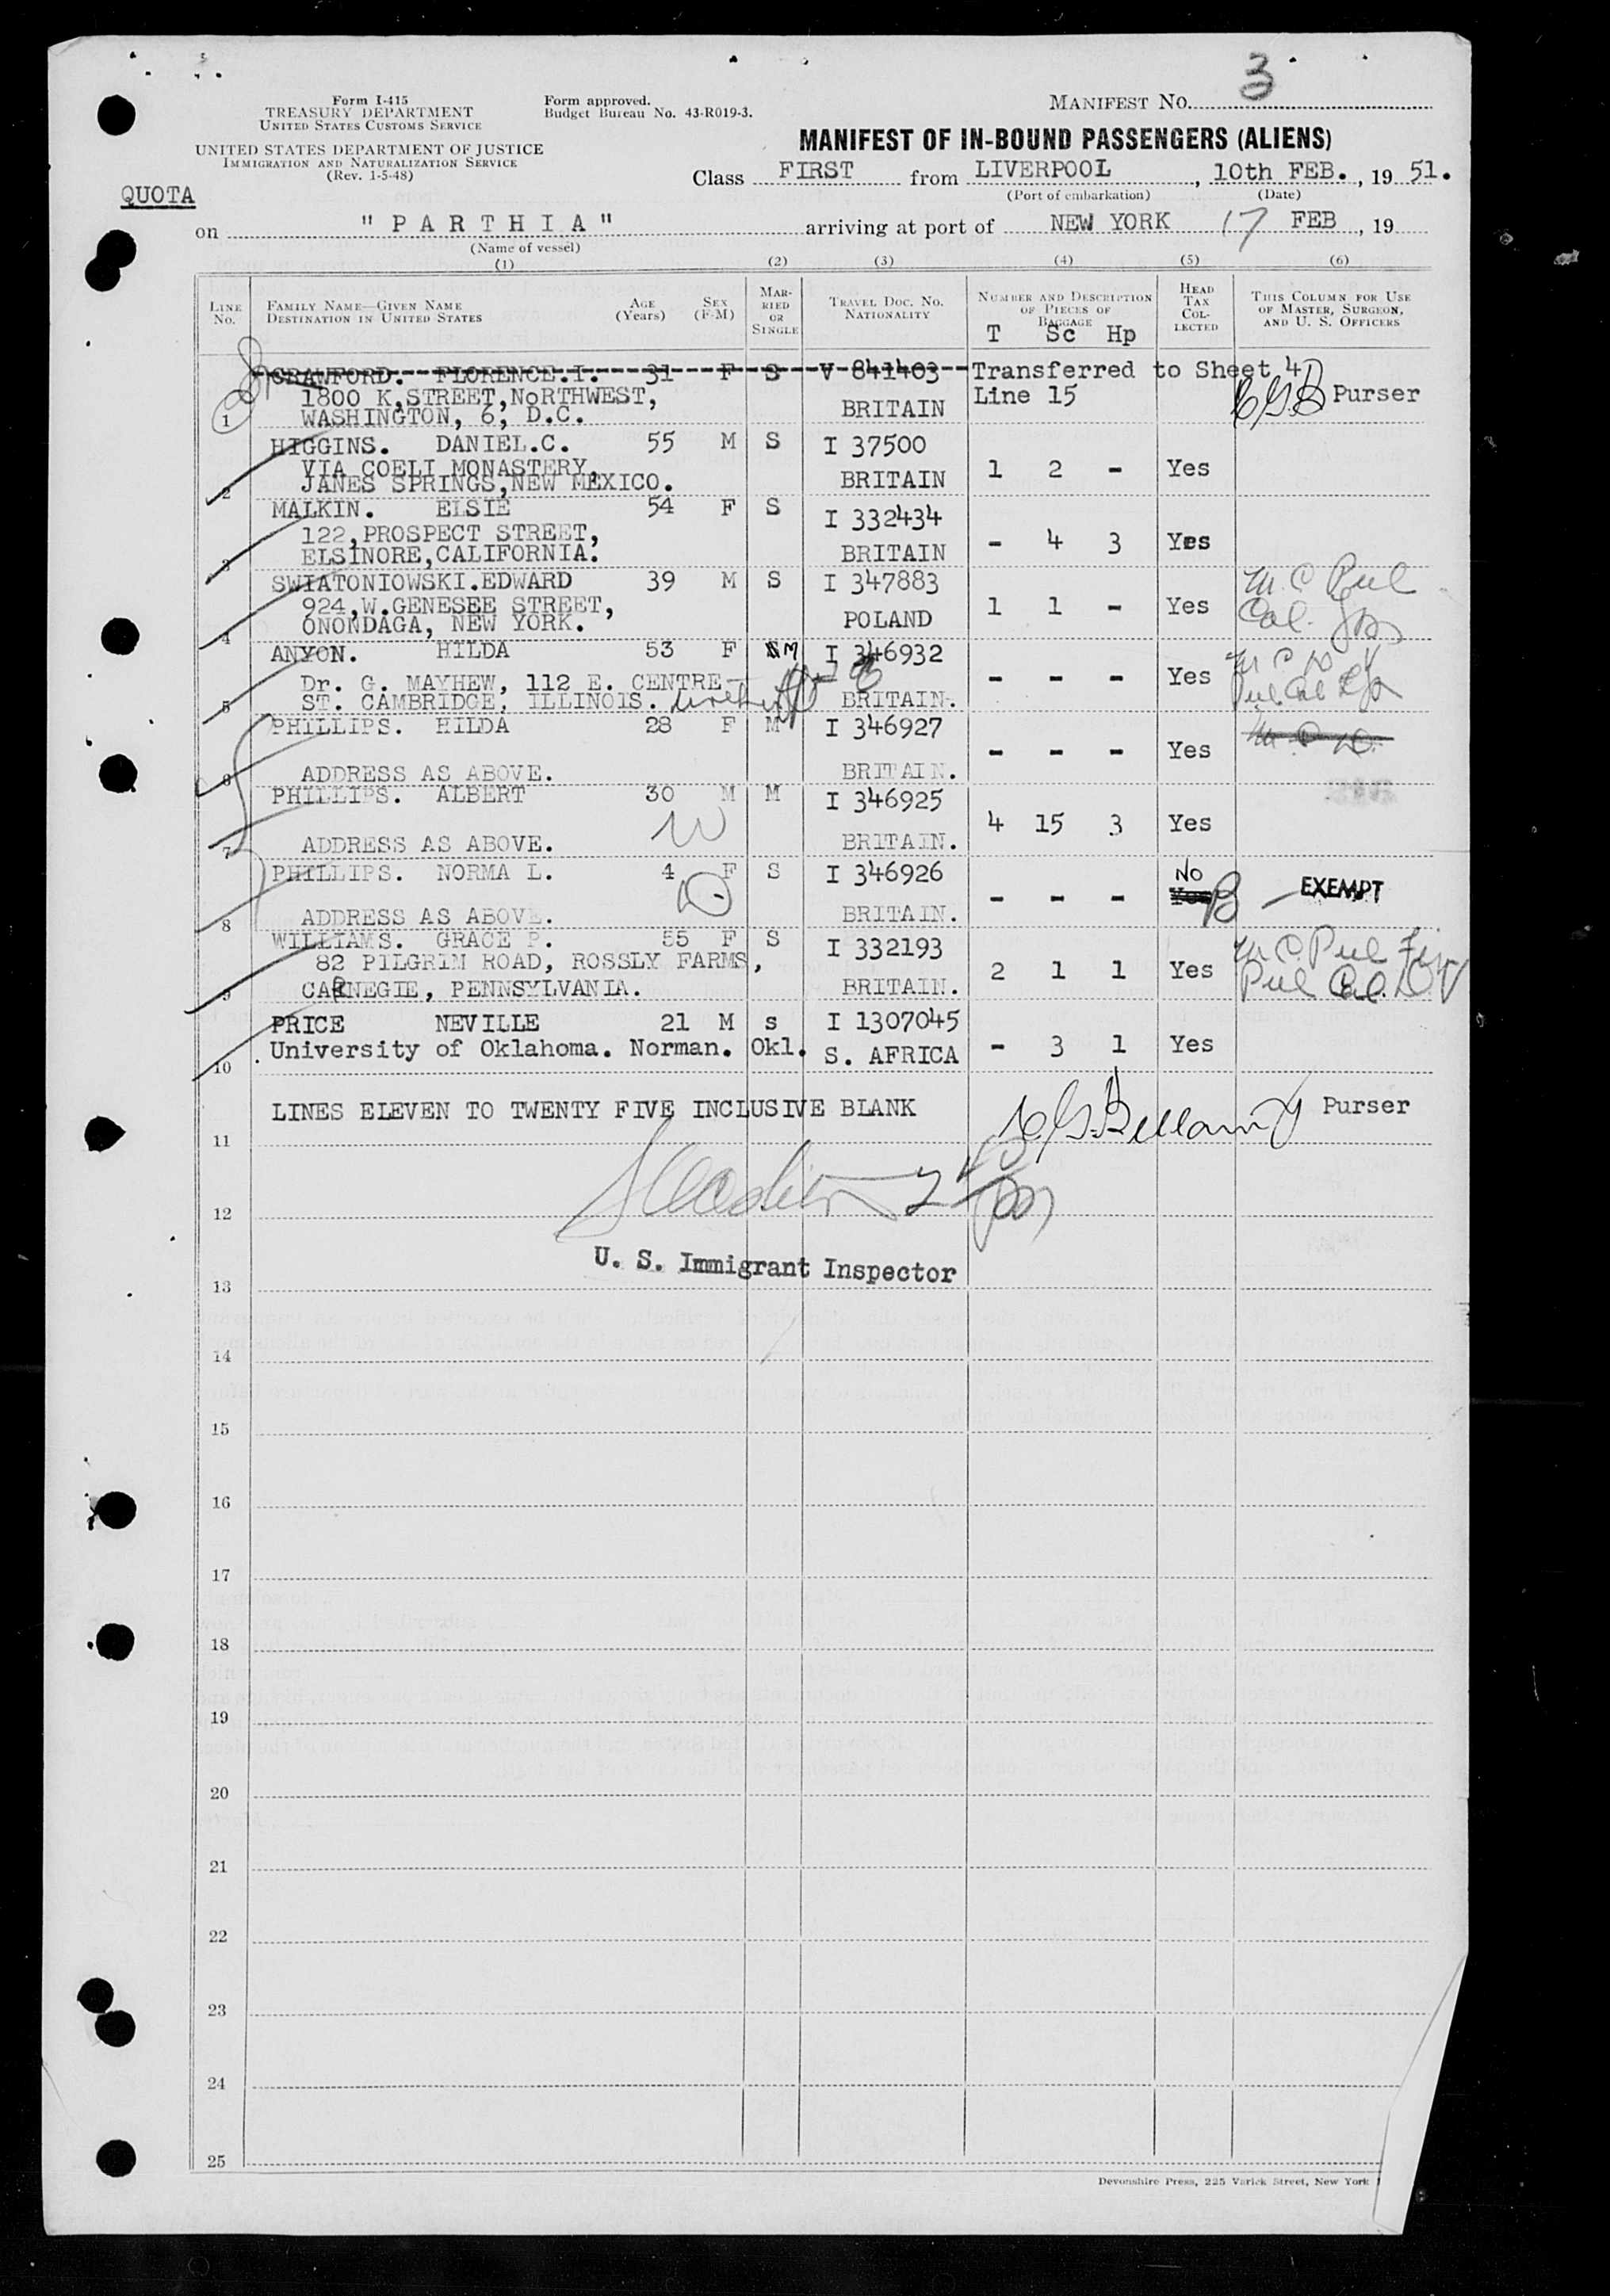 3
Form I-415
TREASURY DEPARTMENT
UNITED STATES CUSTOMS SERVICE
Form approved.
Budget Bureau No. 43-R019-3.
MANIFEST NO.
UNITED STATES DEPARTMENT OF JUSTICE
IMMIGRATION AND NATURALIZATION SERVICE
(Rev. 1-5-48)
MANIFEST OF IN-BOUND PASSENGERS (ALIENS)
QUOTA
Class FIRST from LIVERPOOL, 10th FEB., 19 51.
(Port of embarkation) (Date)
on "PARTHIA" arriving at port of NEW YORK 17 FEB, 19
(Name of vessel)
(1) (2) (3) (4) (5) (6)
LINE NO. FAMILY NAME—GIVEN NAME DESTINATION IN UNITED STATES AGE (Years) SEX (F-M) MARRIED OR SINGLE TRAVEL DOC. NO. NATIONALITY NUMBER AND DESCRIPTION OF PIECES OF BAGGAGE HEAD TAX COLLECTED THIS COLUMN FOR USE OF MASTER, SURGEON, AND U. S. OFFICERS
T Sc Hp
CRAWFORD. FLORENCE.I. 31 F S V 841403 Transferred to Sheet 4
1800 K,STREET,NORTHWEST, Line 15 Purser
1 WASHINGTON, 6, D.C. BRITAIN
HIGGINS. DANIEL.C. 55 M S I 37500
VIA COELI MONASTERY, BRITAIN 1 2 - Yes
2 JANES SPRINGS,NEW MEXICO.
MALKIN. ELSIE 54 F S I 332434
122,PROSPECT STREET, - 4 3 Yes
3 ELSINORE,CALIFORNIA. BRITAIN
SWIATONIOWSKI.EDWARD 39 M S I 347883
924,W.GENESEE STREET, POLAND 1 1 - Yes
4 ONONDAGA, NEW YORK.
ANYON. HILDA 53 F M I 346932
Dr. G. MAYHEW, 112 E. CENTRE - - - Yes
5 ST. CAMBRIDGE, ILLINOIS. BRITAIN.
PHILLIPS. HILDA 28 F M I 346927
- - - Yes
6 ADDRESS AS ABOVE. BRITAIN.
PHILLIPS. ALBERT 30 M M I 346925
4 15 3 Yes
7 ADDRESS AS ABOVE. BRITAIN.
PHILLIPS. NORMA L. 4 F S I 346926 NO
- - - Yes EXEMPT
8 ADDRESS AS ABOVE. BRITAIN.
WILLIAMS. GRACE P. 55 F S I 332193
82 PILGRIM ROAD, ROSSLY FARMS, 2 1 1 Yes
9 CARNEGIE, PENNSYLVANIA. BRITAIN.
PRICE NEVILLE 21 M s I 1307045
10 University of Oklahoma. Norman. Okl. S. AFRICA - 3 1 Yes
LINES ELEVEN TO TWENTY FIVE INCLUSIVE BLANK Purser
11
12
U. S. Immigrant Inspector
13
14
15
16
17
18
19
20
21
22
23
24
25
Devonshire Press, 225 Varick Street, New York